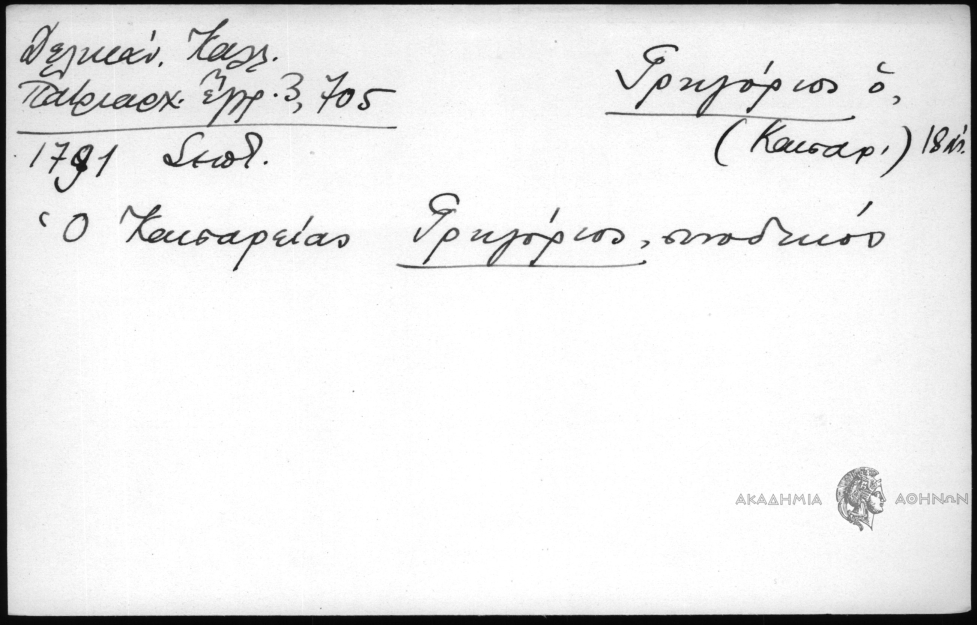 Δελικάν. Καλλ.
Πατριαρχ. ἔγγρ. 3, 705
Γρηγόριος ὁ,
(Καισαρ.) 18 αἰ.
1791 Σεπτ.
Ὁ Καισαρείας Γρηγόριος, συνοδικός
ΑΚΑΔΗΜΙΑ ΑΘΗΝΩΝ